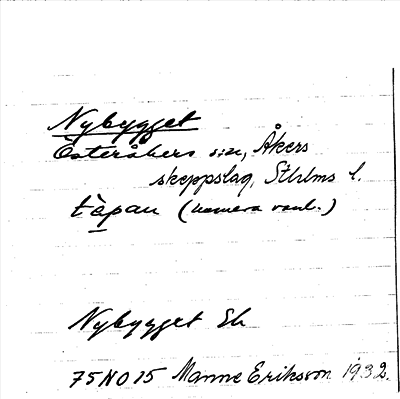 Nybygget
Österåkers s:n, Åkers
skeppslag, Sthlms l.
tȧpan (numera vanl.)
Nybygget Ek
75NO15 Manne Eriksson 1932.